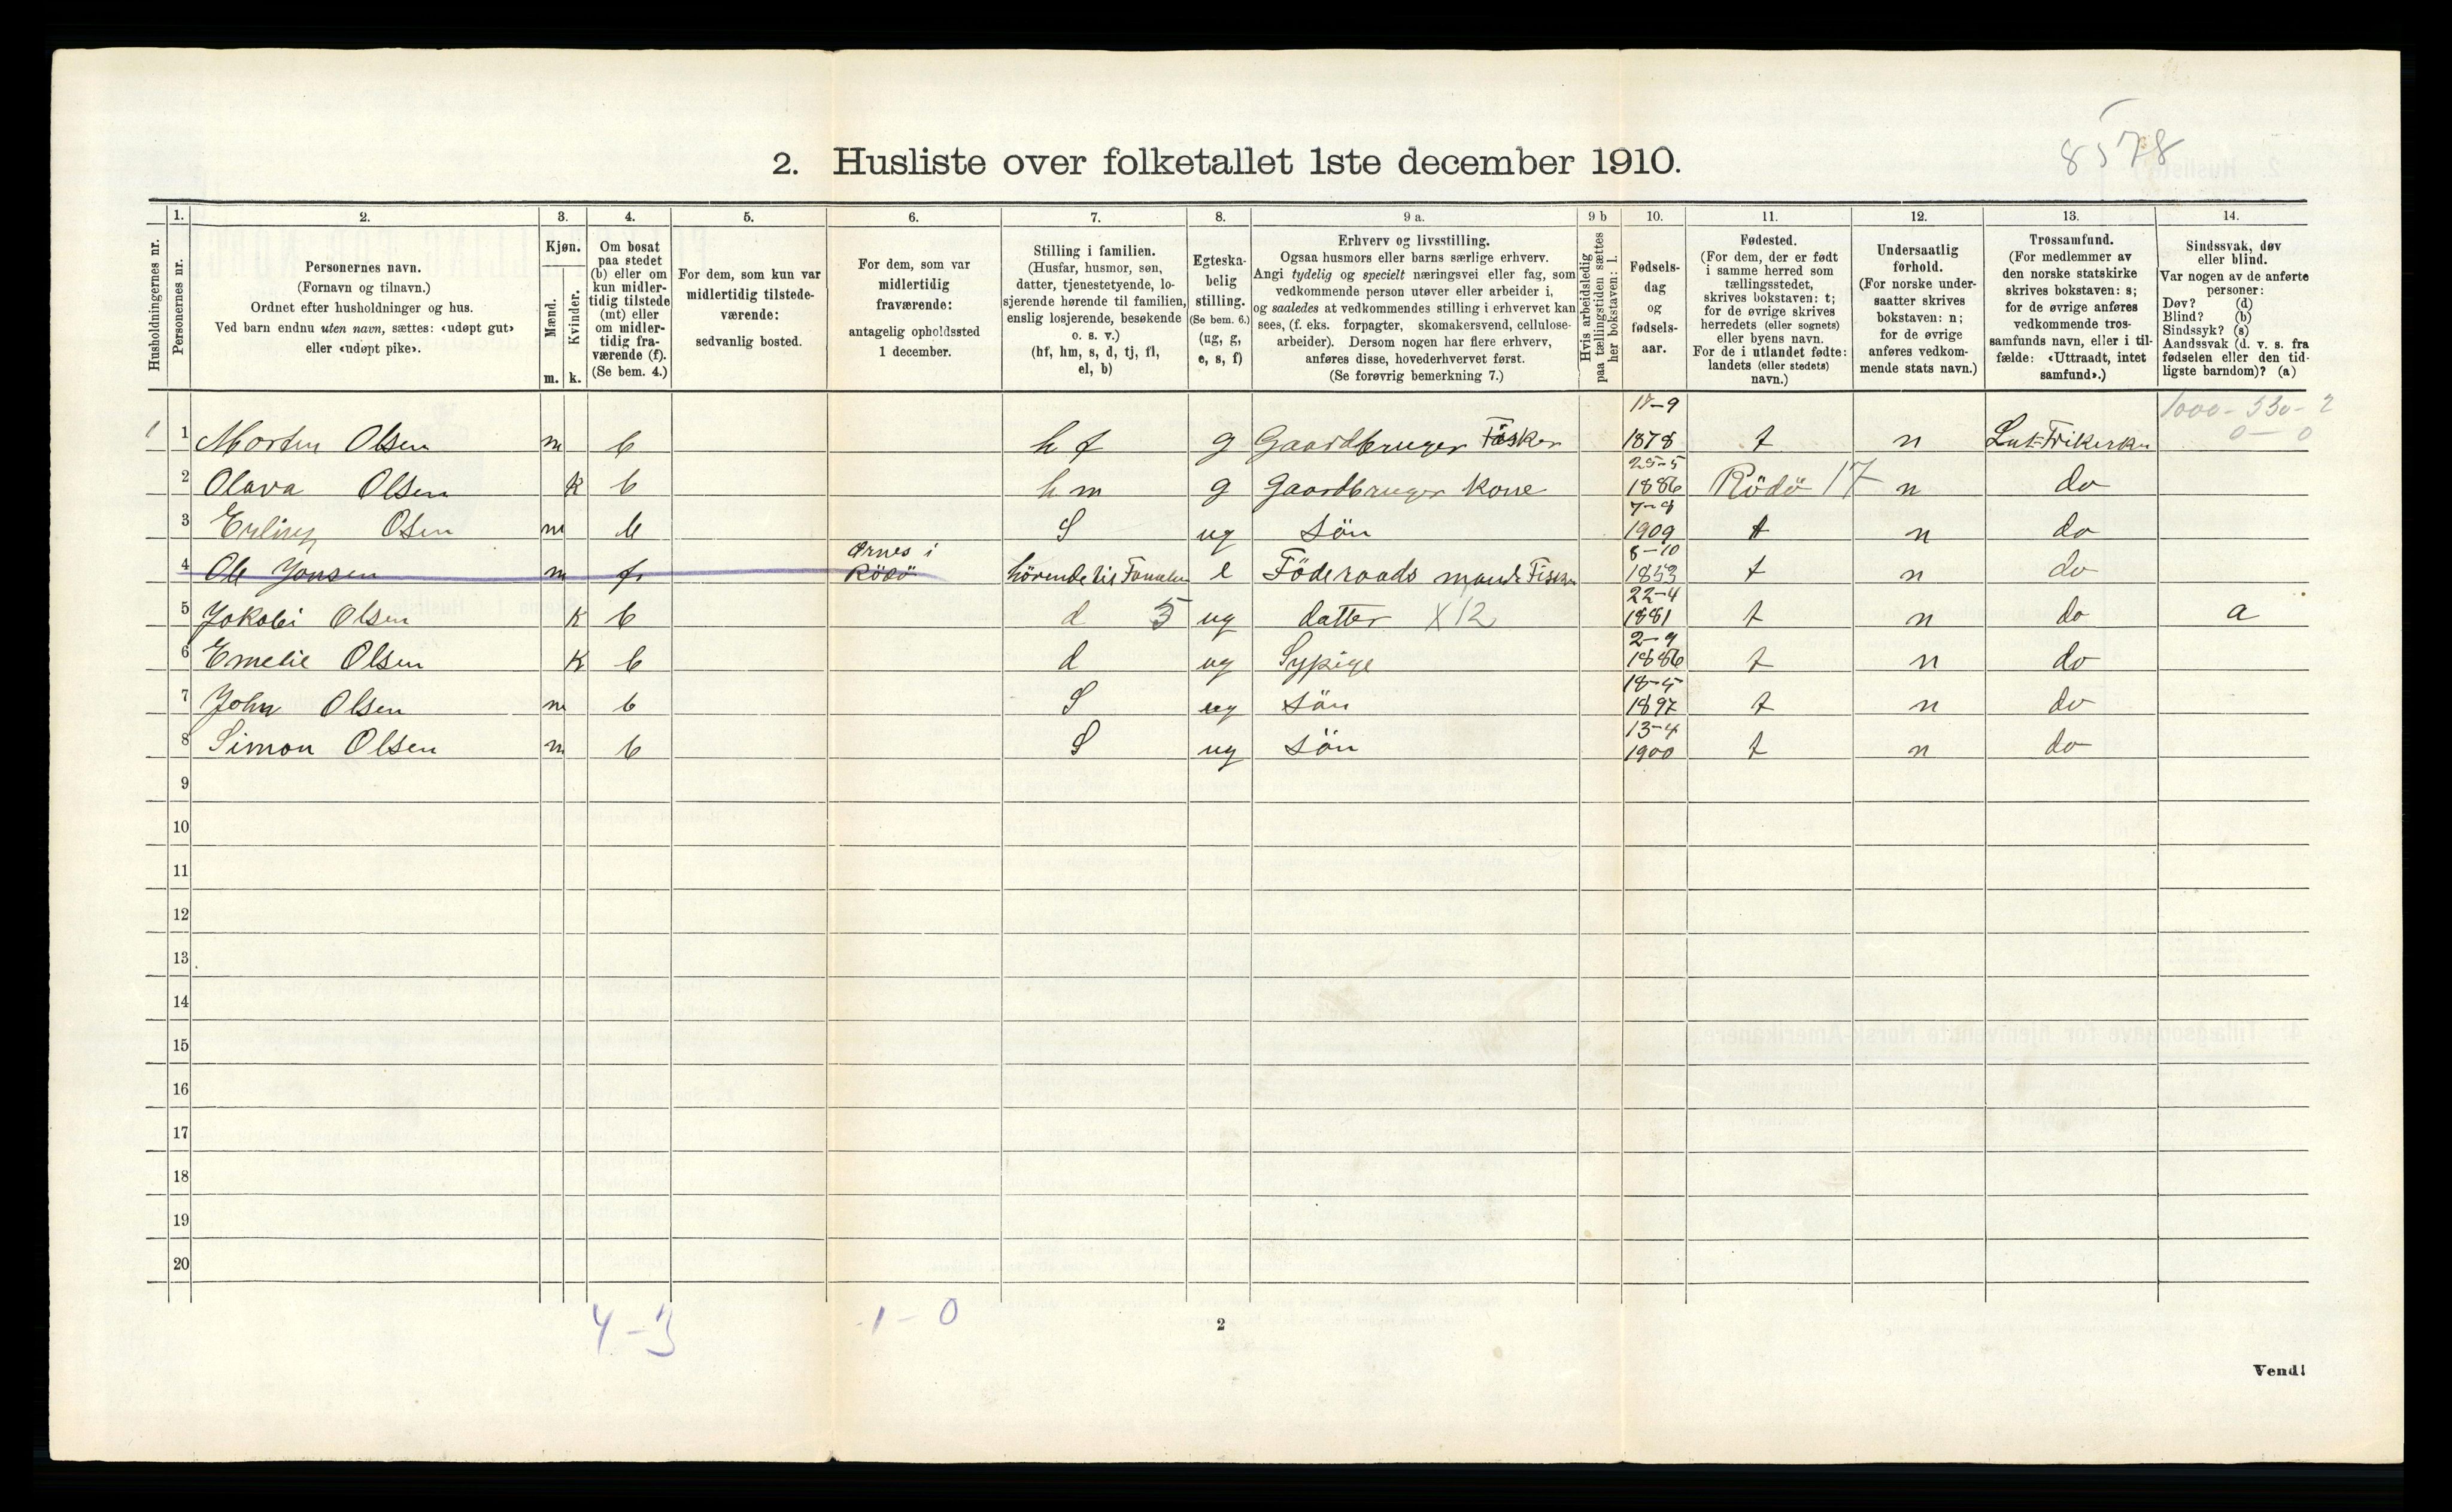 8578
2. Husliste over folketallet 1ste december 1910.
Husholdningernes nr.
1. Personernes nr.
2. Personernes navn. (Fornavn og tilnavn.) Ordnet efter husholdninger og hus. Ved barn endnu uten navn, sættes: «udøpt gut» eller «udøpt pike».
3. Kjøn. Mænd. m. Kvinder. k.
4. Om bosat paa stedet (b) eller om kun midlertidig tilstede (mt) eller om midlertidig fraværende (f). (Se bem. 4.)
5. For dem, som kun var midlertidig tilstedeværende: sedvanlig bosted.
6. For dem, som var midlertidig fraværende: antagelig opholdssted 1 december.
7. Stilling i familien. (Husfar, husmor, søn, datter, tjenestetyende, losjerende hørende til familien, enslig losjerende, besøkende o. s. v.) (hf, hm, s, d, tj, fl, el, b)
8. Egteskabelig stilling. (Se bem. 6.) (ug, g, e, s, f)
9 a. Erhverv og livsstilling. Ogsaa husmors eller barns særlige erhverv. Angi tydelig og specielt næringsvei eller fag, som vedkommende person utøver eller arbeider i, og saaledes at vedkommendes stilling i erhvervet kan sees, (f. eks. forpagter, skomakersvend, cellulosearbeider). Dersom nogen har flere erhverv, anføres disse, hovederhvervet først. (Se forøvrig bemerkning 7.)
9 b Hvis arbeidsledig paa tællingstiden sættes her bokstaven: l.
10. Fødselsdag og fødselsaar.
11. Fødested. (For dem, der er født i samme herred som tællingsstedet, skrives bokstaven: t; for de øvrige skrives herredets (eller sognets) eller byens navn. For de i utlandet fødte: landets (eller stedets) navn.)
12. Undersaatlig forhold. (For norske undersaatter skrives bokstaven: n; for de øvrige anføres vedkommende stats navn.)
13. Trossamfund. (For medlemmer av den norske statskirke skrives bokstaven: s; for de øvrige anføres vedkommende trossamfunds navn, eller i tilfælde: «Uttraadt, intet samfund».)
14. Sindssvak, døv eller blind. Var nogen av de anførte personer: Døv? (d) Blind? (b) Sindssyk? (s) Aandssvak (d. v. s. fra fødselen eller den tidligste barndom)? (a)
1000 - 530 - 2
0 - 0
1 1 Morten Olsen m b hf g Gaardbruger Fisker 17-9 1878 t n Lut-Frikirken
2 Olava Olsen k b hm g Gaardbruger kone 25-5 1886 Rödö 17 n do
3 Erling Osen m b S ug Sön 7-9 1909 t n do
4 Ole Jonsen m f. Ørnes i Rödö hörende til Familien e Föderaads mand Fisker 8-10 1853 t n do
5 Jakobi Olsen k b d 5 ug datter X12 22-4 1881 t n do a
6 Emelie Olsen k b d ug Sypige 2-9 1886 t n do
7 John Olsen m b S ug Sön 18-5 1897 t n do
8 Simon Olsen m b S ug Sön 13-4 1900 t n do
9
10
11
12
13
14
15
16
17
18
19
20
4-3 1-0
2
Vend!